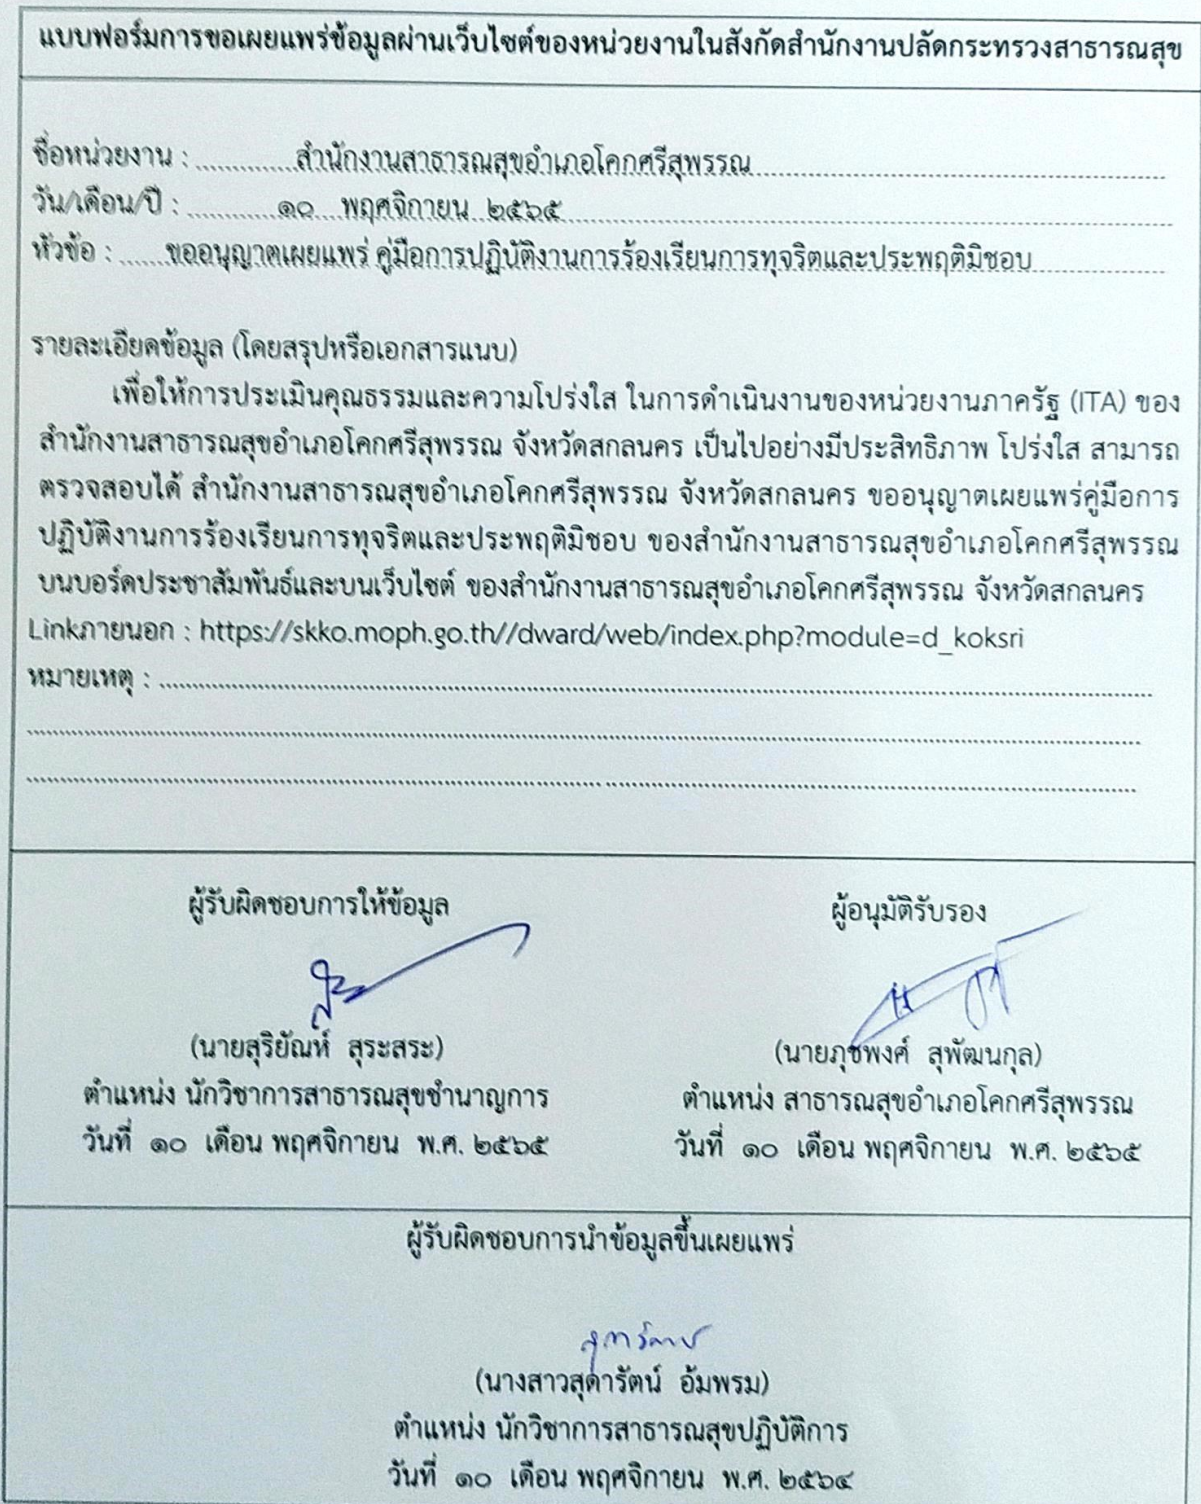 แบบฟอร์มการขอเผยแพร่ข้อมูลผ่านเว็บไซต์ของหน่วยงานในสังกัดสำนักงานปลัดกระทรวงสาธารณสุข
ชื่อหน่วยงาน : .............สำนักงานสาธารณสุขอำเภอโคกศรีสุพรรณ..............
วัน/เดือน/ปี : .............๑๐ พฤศจิกายน ๒๕๖๕..............
หัวข้อ : ......ขออนุญาตเผยแพร่ คู่มือการปฏิบัติงานการร้องเรียนการทุจริตและประพฤติมิชอบ..............
รายละเอียดข้อมูล (โดยสรุปหรือเอกสารแนบ)
เพื่อให้การประเมินคุณธรรมและความโปร่งใส ในการดำเนินงานของหน่วยงานภาครัฐ (ITA) ของ
สำนักงานสาธารณสุขอำเภอโคกศรีสุพรรณ จังหวัดสกลนคร เป็นไปอย่างมีประสิทธิภาพ โปร่งใส สามารถ
ตรวจสอบได้ สำนักงานสาธารณสุขอำเภอโคกศรีสุพรรณ จังหวัดสกลนคร ขออนุญาตเผยแพร่คู่มือการ
ปฏิบัติงานการร้องเรียนการทุจริตและประพฤติมิชอบ ของสำนักงานสาธารณสุขอำเภอโคกศรีสุพรรณ
บนบอร์ดประชาสัมพันธ์และบนเว็บไซต์ ของสำนักงานสาธารณสุขอำเภอโคกศรีสุพรรณ จังหวัดสกลนคร
Linkภายนอก : https://skko.moph.go.th//dward/web/index.php?module=d_koksri
หมายเหตุ : ..............
ผู้รับผิดชอบการให้ข้อมูล
(นายสุริยัณห์ สุระสระ)
ตำแหน่ง นักวิชาการสาธารณสุขชำนาญการ
วันที่ ๑๐ เดือน พฤศจิกายน พ.ศ. ๒๕๖๕
ผู้อนุมัติรับรอง
(นายภุชพงศ์ สุพัฒนกุล)
ตำแหน่ง สาธารณสุขอำเภอโคกศรีสุพรรณ
วันที่ ๑๐ เดือน พฤศจิกายน พ.ศ. ๒๕๖๕
ผู้รับผิดชอบการนำข้อมูลขึ้นเผยแพร่
(นางสาวสุดารัตน์ อ้มพรม)
ตำแหน่ง นักวิชาการสาธารณสุขปฏิบัติการ
วันที่ ๑๐ เดือน พฤศจิกายน พ.ศ. ๒๕๖๔